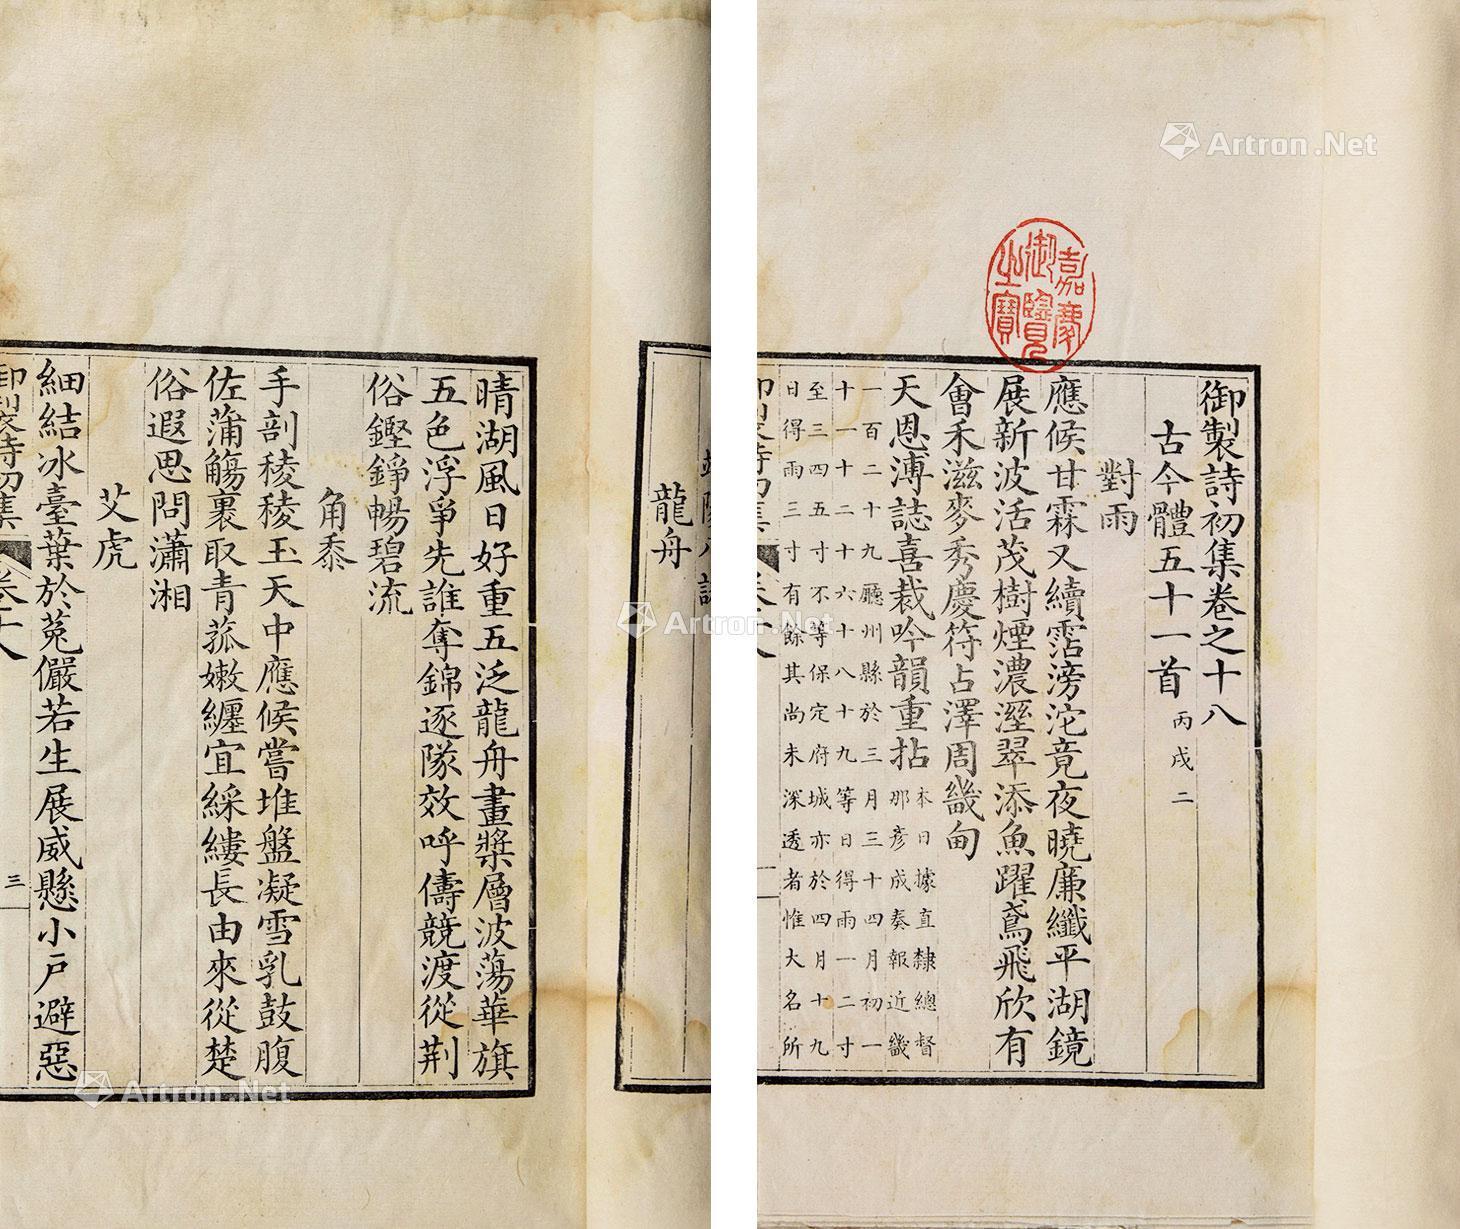 御製詩初集卷之十八
古今體五十一首 丙戌二
對雨
應候甘霖又續霑滂沱竟夜曉廉纖平湖鏡
展新波活茂樹煙濃溼翠添魚躍鳶飛欣有
會禾滋麥秀慶符占澤周畿甸
天恩溥誌喜裁吟韻重拈 本日據直隸總督
那彥成奏報近畿
一百二十九廳州縣於三月三十四月初一
十一十二十六十八十九等日得雨一二寸
至三四五寸不等保定府城亦於四月十九
日得雨三寸有餘其尚未深透者惟大名所
嘉慶御覽之寶
龍舟
晴湖風日好重五泛龍舟畫槳層波蕩華旗
五色浮爭先誰奪錦逐隊效呼儔競渡從荆
俗鏗錚暢碧流
角黍
手剖稜稜玉天中應候嘗堆盤凝雪乳鼓腹
佐蒲觴裹取青菰嫩纏宜綵縷長由來從楚
俗遐思問瀟湘
艾虎
細結冰臺葉於菟儼若生展威懸小戸避惡
三
Artron.Net
Artron.Net
Artron.Net